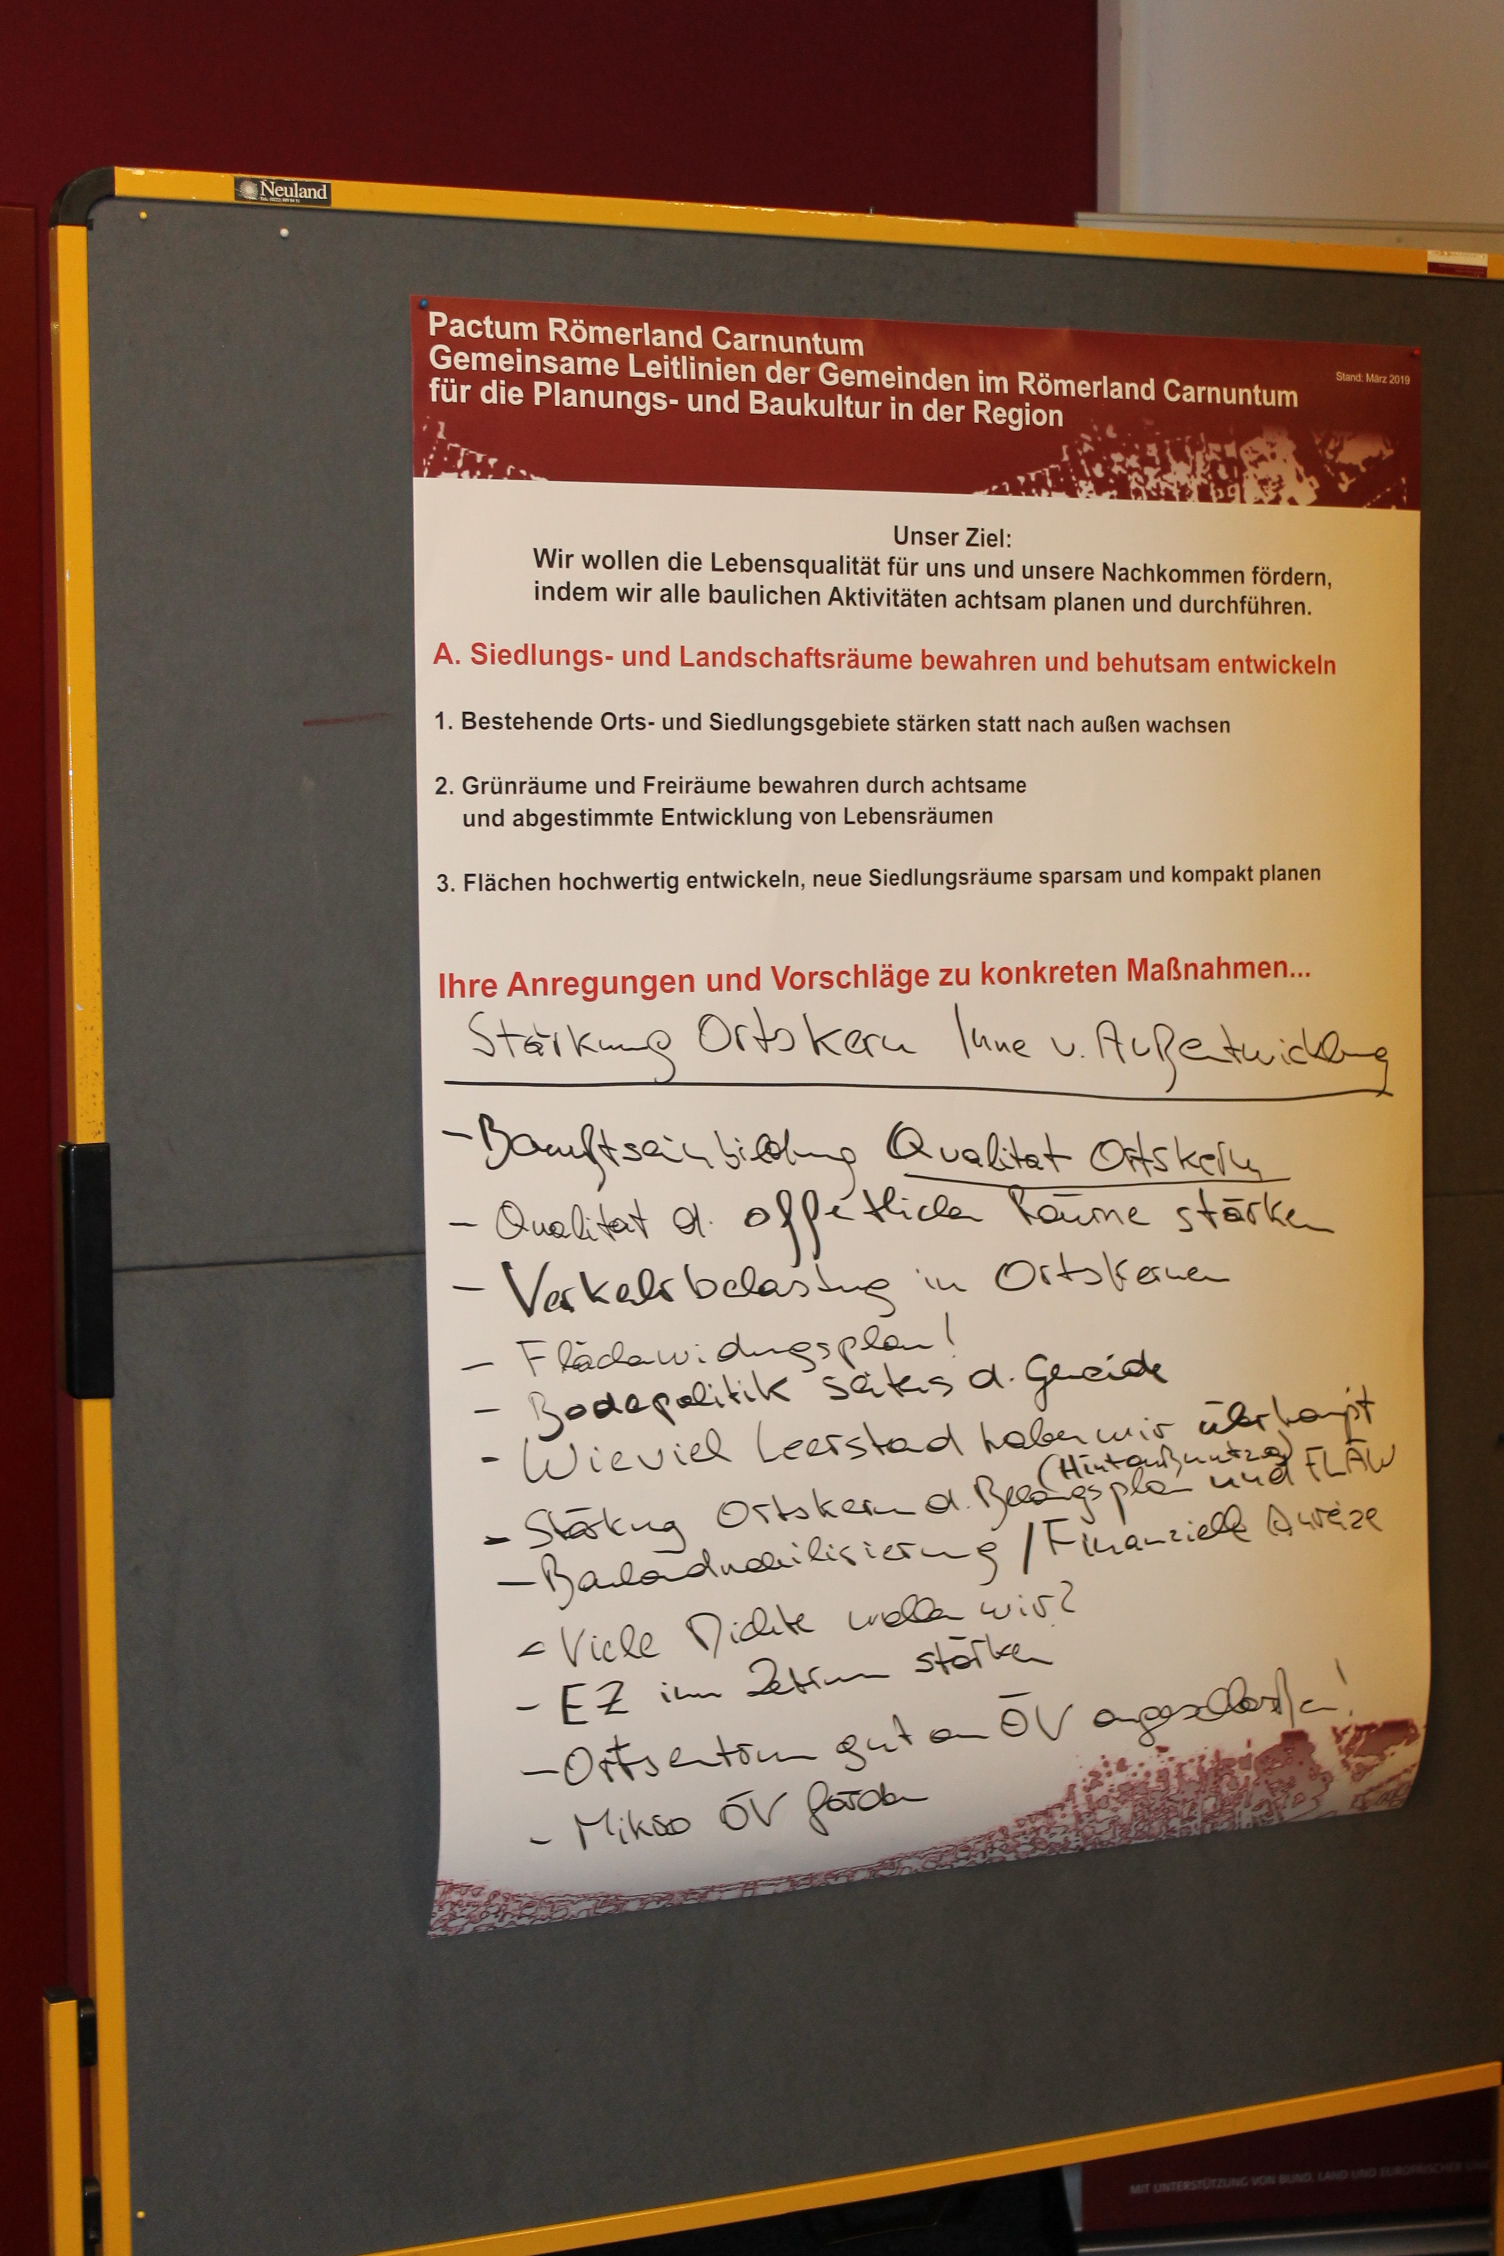 Neuland
Pactum Römerland Carnuntum
Gemeinsame Leitlinien der Gemeinden im Römerland Carnuntum
für die Planungs- und Baukultur in der Region
Stand: März 2019
Unser Ziel:
Wir wollen die Lebensqualität für uns und unsere Nachkommen fördern,
indem wir alle baulichen Aktivitäten achtsam planen und durchführen.
A. Siedlungs- und Landschaftsräume bewahren und behutsam entwickeln
1. Bestehende Orts- und Siedlungsgebiete stärken statt nach außen wachsen
2. Grünräume und Freiräume bewahren durch achtsame
und abgestimmte Entwicklung von Lebensräumen
3. Flächen hochwertig entwickeln, neue Siedlungsräume sparsam und kompakt planen
Ihre Anregungen und Vorschläge zu konkreten Maßnahmen...
Stärkung Ortskern Inne v. Außentwicklung
- Qualität Ortskern
- Qualität d. öffentlichen Räume stärken
- Verkehrsbelastung in Ortskernen
- Flächenwidmungsplan!
- Bodenpolitik seitens d. Gemeinde
- Wieviel Leerstand haben wir überhaupt
- Stärkung Ortskern d. und FLÄW
- Baulandmobilisierung / Finanzielle Anreize
- Viele Dichte wollen wir?
- EZ im Zentrum stärken
- Ortszentrum gut an ÖV angeschloßen!
- Mikro ÖV fördern
MIT UNTERSTÜTZUNG VON BUND, LAND UND EUROPÄISCHER